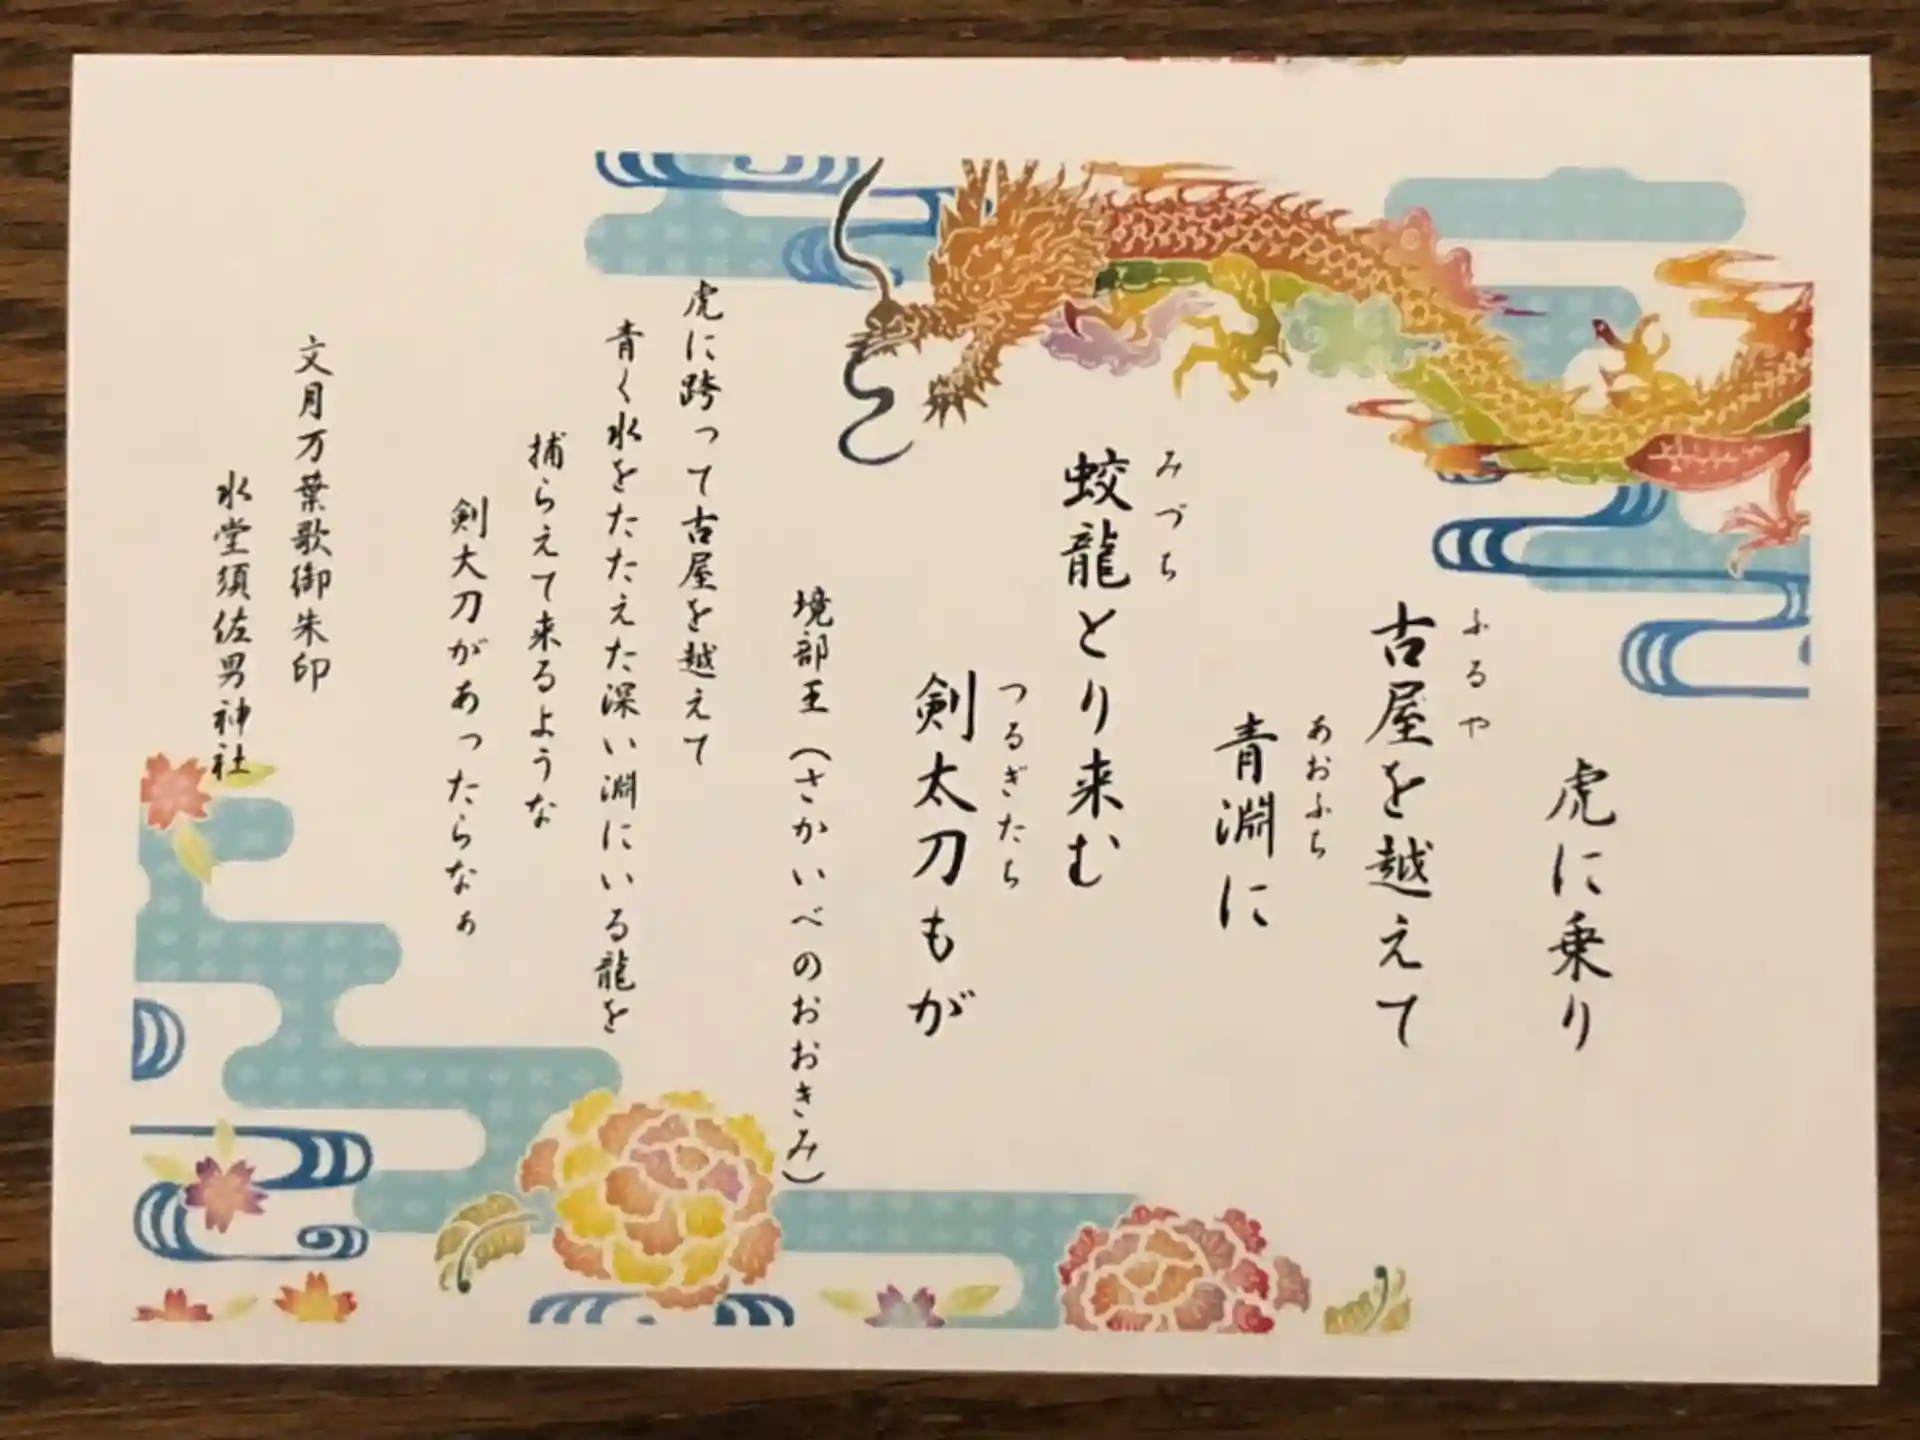 虎に乗り
古屋を越えて
ふるや
青淵に
あおふち
蛟龍とり来む
みづち
剣太刀もが
つるぎたち
境部王（さかいべのおおきみ）
虎に跨って古屋を越えて
青く水をたたえた深い淵にいる龍を
捕らえて来るような
剣大刀があったらなぁ
文月万葉歌御朱印
水堂須佐男神社